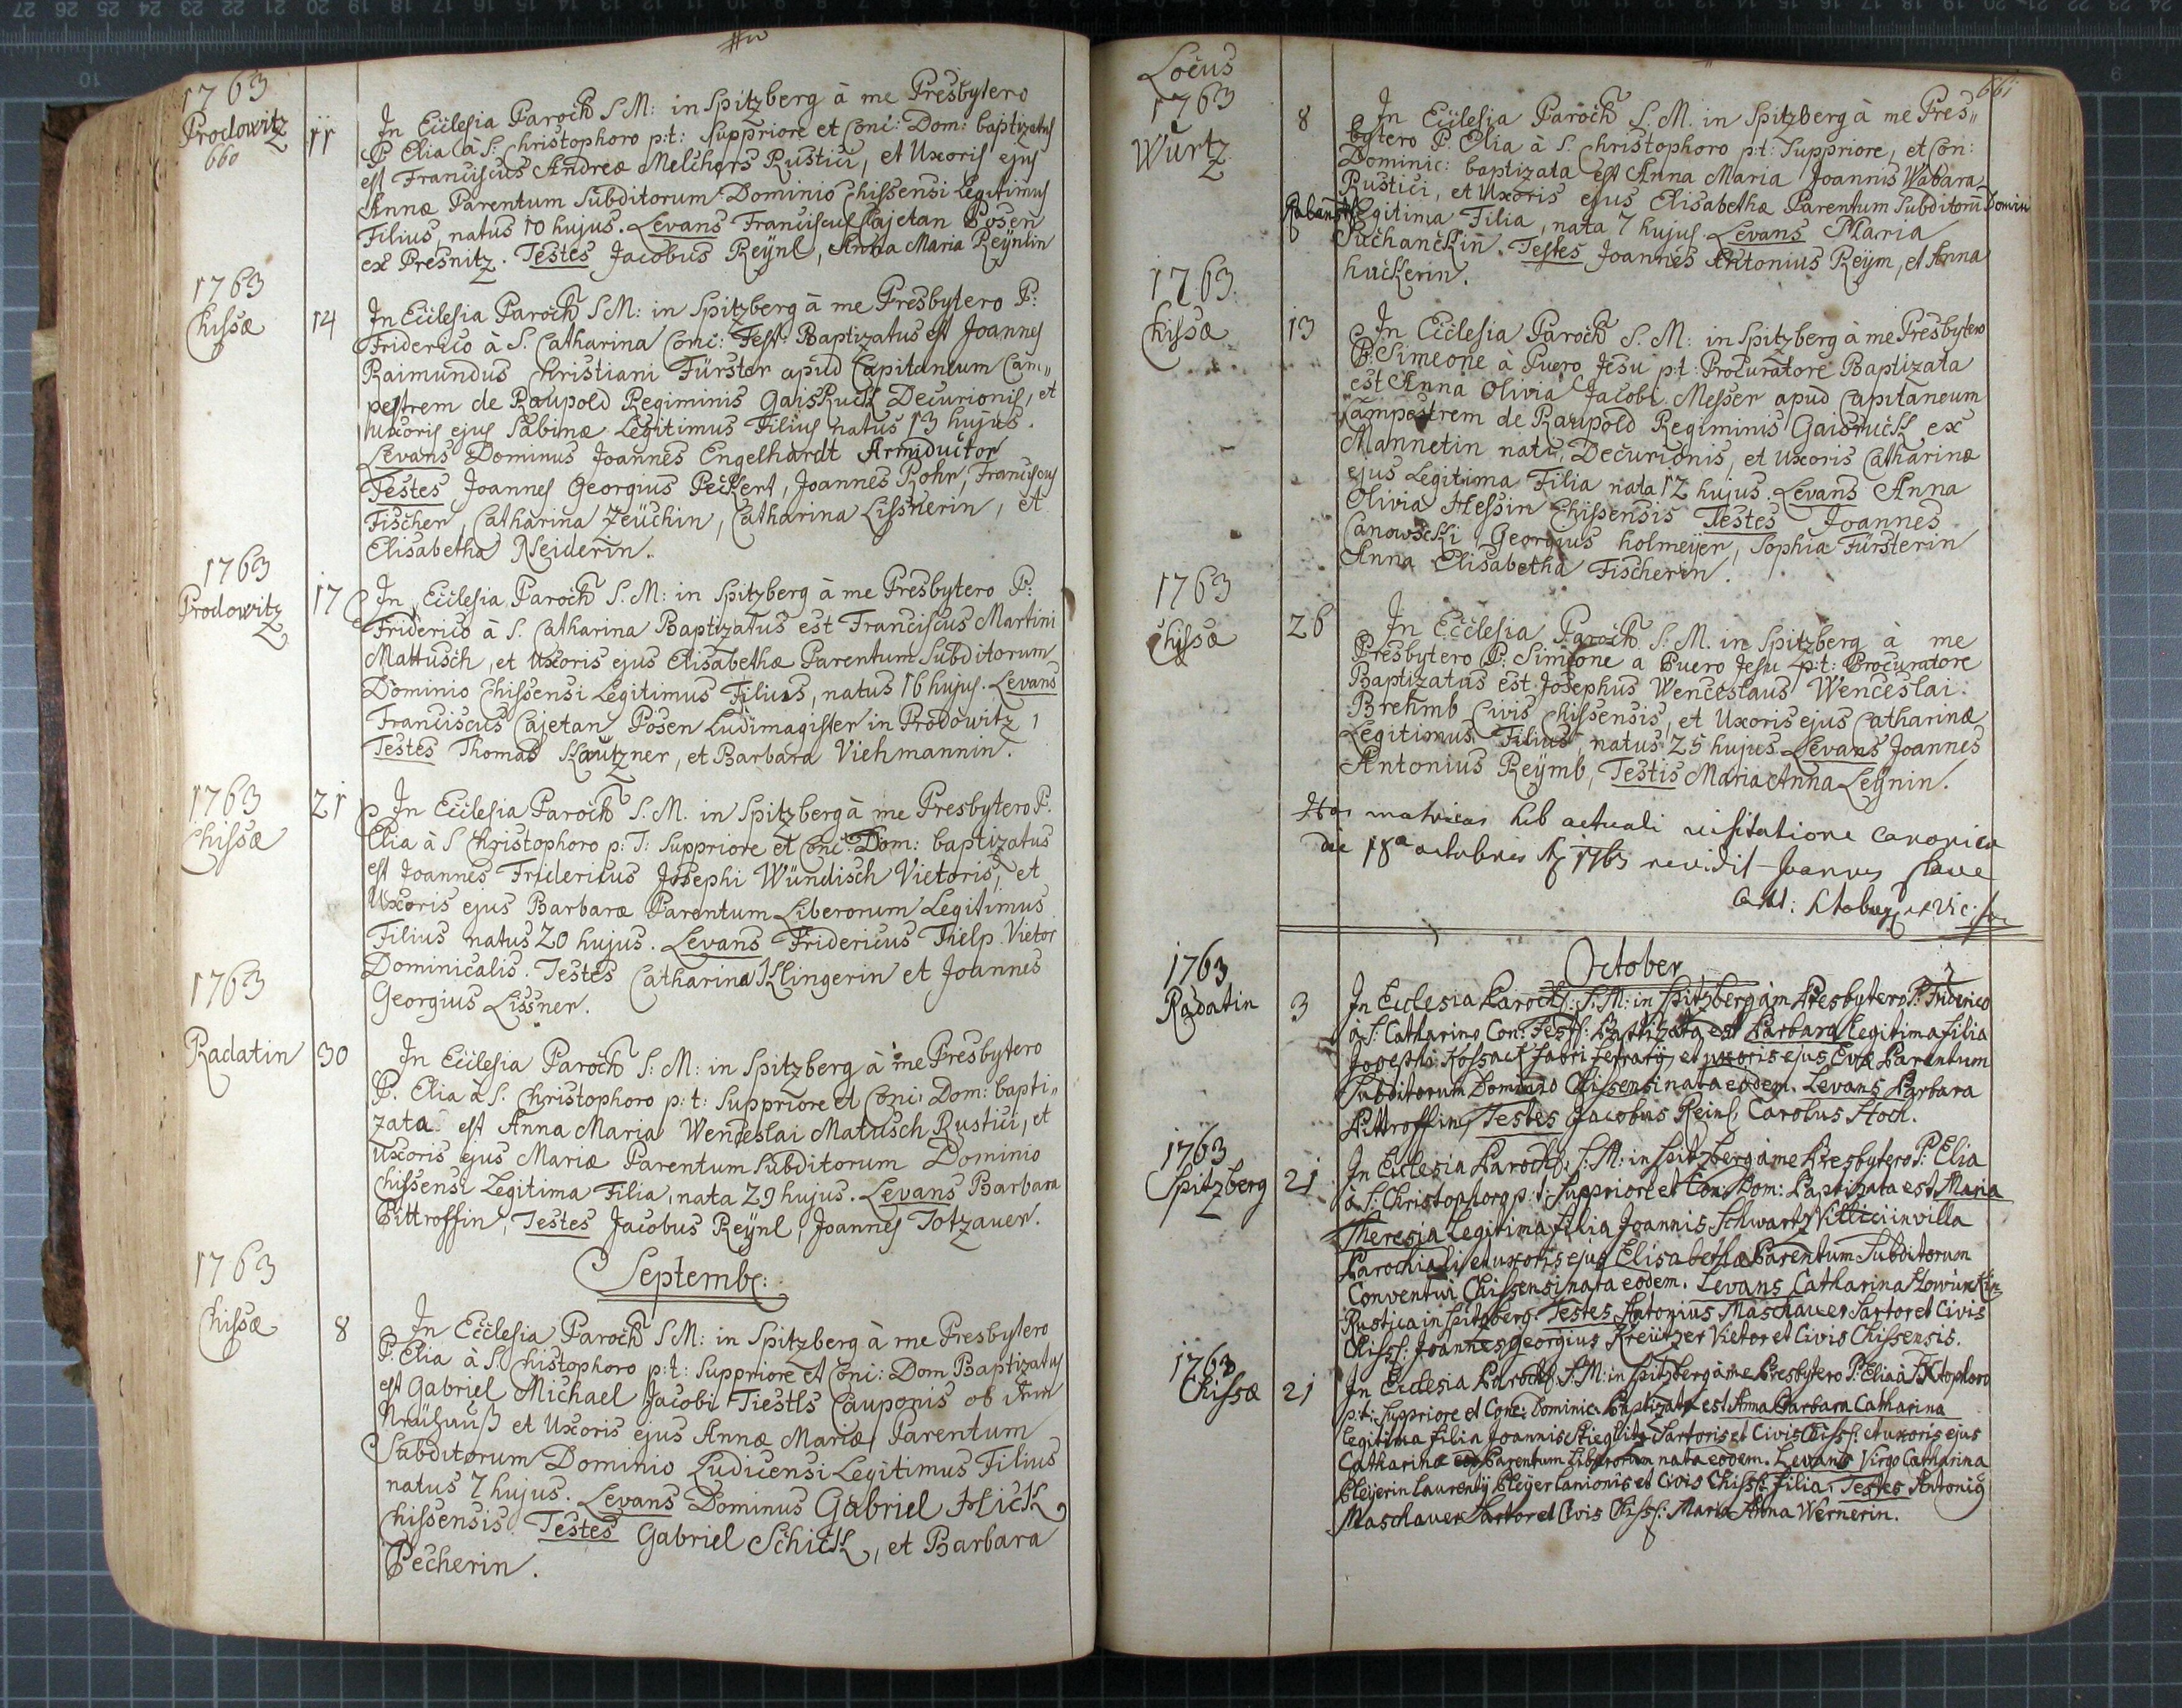 1763
Prodowitz
660
11
In Ecclesia Paroch S M: in Spitzberg à me Presbytero
P Elia à S: Christophoro p:t: Suppriore et Conc: Dom: baptizatus
est Franciscus Andreæ Melchers Rustici, et Uxoris ejus
Annæ Parentum Subditorum Dominio Chissensi Legitimus
Filius, natus 10 hujus. Levans Franciscus Cajetan Posen
ex Presnitz. Testes Jacobus Reÿnl, Anna Maria Reÿnlin
1763
Chissæ
14
In Ecclesia Paroch S M: in Spitzberg à me Presbytero P:
Friderico à S. Catharina Conc: Fest: Baptizatus est Joannes
Raimundus Christiani Fürster apud Capitaneum Cam„
pestrem de Raupold Regiminis GaisRuck Decurionis, et
Uxoris ejus Sabinæ Legitimus Filius natus 13 hujus.
Levans Dominus Joannes Engelhardt Armiductor
Testes Joannes Georgius Peckert, Joannes Rohr, Franciscus
Fischer, Catharina Zeüchin, Catharina Lissnerin, et
Elisabetha Neiderin.
1763
Prodowitz
17
In Ecclesia Paroch S. M: in Spitzberg à me Presbytero P:
Friderico à S. Catharina Baptizatus est Franciscus Martini
Mattusch, et Uxoris ejus Elisabethæ Parentum Subditorum
Dominio Chissensi Legitimus Filius, natus 16 hujus. Levans
Franciscus Cajetan Posen Ludimagister in Prodowitz,
Testes Thomas Kautzner, et Barbara Viehmannin.
1763
Chissæ
21
In Ecclesia Paroch S. M. in Spitzberg à me Presbytero P.
Elia à S Christophoro p: T: Suppriore et Conc: Dom: baptizatus
est Joannes Fridericus Josephi Wündisch Vietoris, et
Uxoris ejus Barbaræ Parentum Liberorum Legitimus
Filius natus 20 hujus. Levans Fridericus Thelp Vietor
Dominicalis. Testes Catharina Klingerin et Joannes
Georgius Lissner.
1763
Radatin
30
In Ecclesia Paroch S: M: in Spitzberg à me Presbytero
P. Elia à S. Christophoro p: t: Suppriore et Conc: Dom: bapti„
zata est Anna Maria Wenceslai Matusch Rustici, et
Uxoris ejus Mariæ Parentum Subditorum Dominio
Chissensi Legitima Filia, nata 29 hujus. Levans Barbara
Pittroffin, Testes Jacobus Reÿnl, Joannes Totzauer.
Septembr:
1763
Chissæ
8
In Ecclesia Paroch S M: in Spitzberg à me Presbytero
P: Elia à S. Christophoro p:t: Suppriore et Conc: Dom Baptizatus
est Gabriel Michael Jacobi Tiestls Cauponis ob dem
et Uxoris ejus Annæ Mariæ Parentum
Subditorum Dominio Ludicensi Legitimus Filius
natus 7 hujus. Levans Dominus Gabriel Hick
Chissensis. Testes Gabriel Schick, et Barbara
Pecherin.
Locus
661
1763
Wurtz
8
In Ecclesia Paroch S. M. in Spitzberg à me Pres„
bytero P. Elia à S. Christophoro p:t: Suppriore, et Con:
Dominic: baptizata est Anna Maria Joannis Wabara
Rustici, et Uxoris ejus Elisabethæ Parentum Subditorū Domin
Legitima Filia, nata 7 hujus. Levans Maria
Suchanckin. Testes Joannes Antonius Reÿm, et Anna
Huckerin.
1763
Chissæ
13
In Ecclesia Paroch S. M: in Spitzberg à me Presbytero
P: Simeone à Puero Jesu p:t: Procuratore Baptizata
est Anna Olivia Jacobi Messer apud Capitaneum
Campestrem de Raupold Regiminis Gaisruck ex
Mannetin nati, Decurionis, et Uxoris Catharinæ
ejus Legitima Filia nata 12 hujus. Levans Anna
Olivia Hessin Chissensis Testes Joannes
Canowscki Georgius Holmeijer, Sophia Fürsterin
Anna Elisabetha Fischerin.
1763
Chissæ
26
In Ecclesia Paroch S. M. in Spitzberg à me
Presbytero P: Simeone a Puero Jesu p:t: Procuratore
Baptizatus est Josephus Wenceslaus Wenceslai
Brehmb Civis Chissensis, et Uxoris ejus Catharinæ
Legitimus Filius, natus 25 hujus. Levans Joannes
Antonius Reÿmb, Testis Maria Anna Leÿnin.
Has matricas sub actuali visitatione canonica
die 18a octobris 1763 revidit Joannes
October
1763
Radatin
3
In Ecclesia Paroch: S: M: in Spitzberg à m Presbytero P: Friderico
à S. Catharina Con: Fest: Baptizata est Barbara Legitima filia
Josephi Kossack fabri ferrarij, et uxoris ejus Evæ Parentum
Subditorum Dominio Chissensi nata eodem. Levans Barbara
Pittroffin, Testes Jacobus Reinl, Carolus Stoch.
1763
Spitzberg
21
In Ecclesia Paroch: S: M: in Spitzberg à me Presbytero P: Elia
à S: Christophoro p: t: Suppriore et Con: Dom: Baptizata est Maria
Theresia Legitima filia Joannis Schwartz Villici in villa
Parochiali et uxoris ejus Elisabethæ Parentum Subditorum
Conventui Chissensi nata eodem. Levans Catharina
Rustica in Spitzberg. Testes Antonius Maschauer Sartor et Civis
Chiss: Joannes Georgius Kreützer Vietor et Civis Chissensis.
1763
Chissæ
21
In Ecclesia Paroch: S: M: in Spitzberg à me Presbytero P: Elia à S: Xtophoro
p: t: Suppriore et Conc: Dominic. Baptizata est Anna Barbara Catharina
legitima filia Joannis Stieglitz Sartoris et Civis Chiss: et uxoris ejus
Catharinæ Parentum Liberorum nata eodem. Levans Virgo Catharina
Pleÿerin Laurentij Pleÿer Lanionis et Civis Chiss: filia. Testes Antonius
Maschauer Sartor et Civis Chiss: Maria Anna Wernerin.